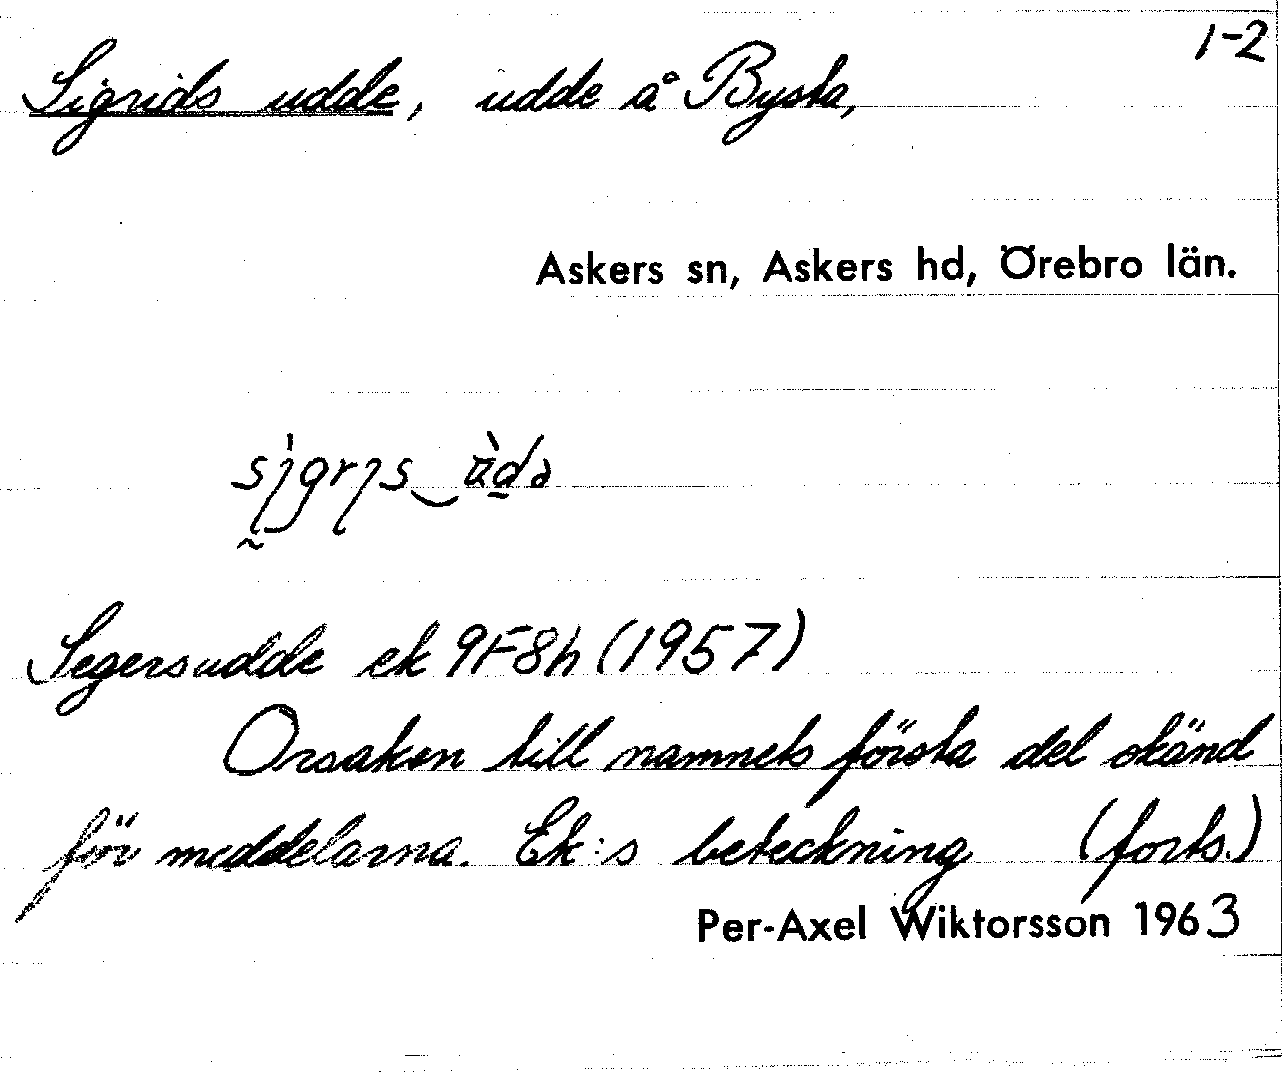 1-2
Sigrids udde, udde å Bysta,
Askers sn, Askers hd, Örebro län.
Segersudde ek 9F8h (1957)
Orsaken till namnets första del okänd
för meddelarna. Ek:s beteckning (forts.)
Per-Axel Wiktorsson 1963